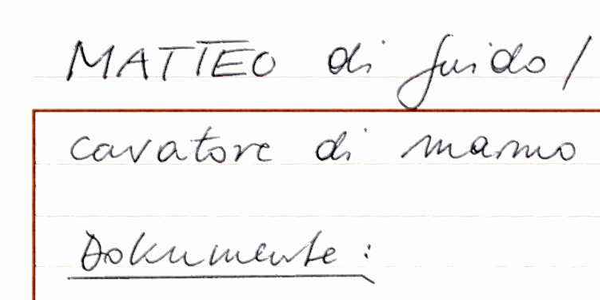 MATTEO di Guido /
cavatore di marmo
Dokumente: